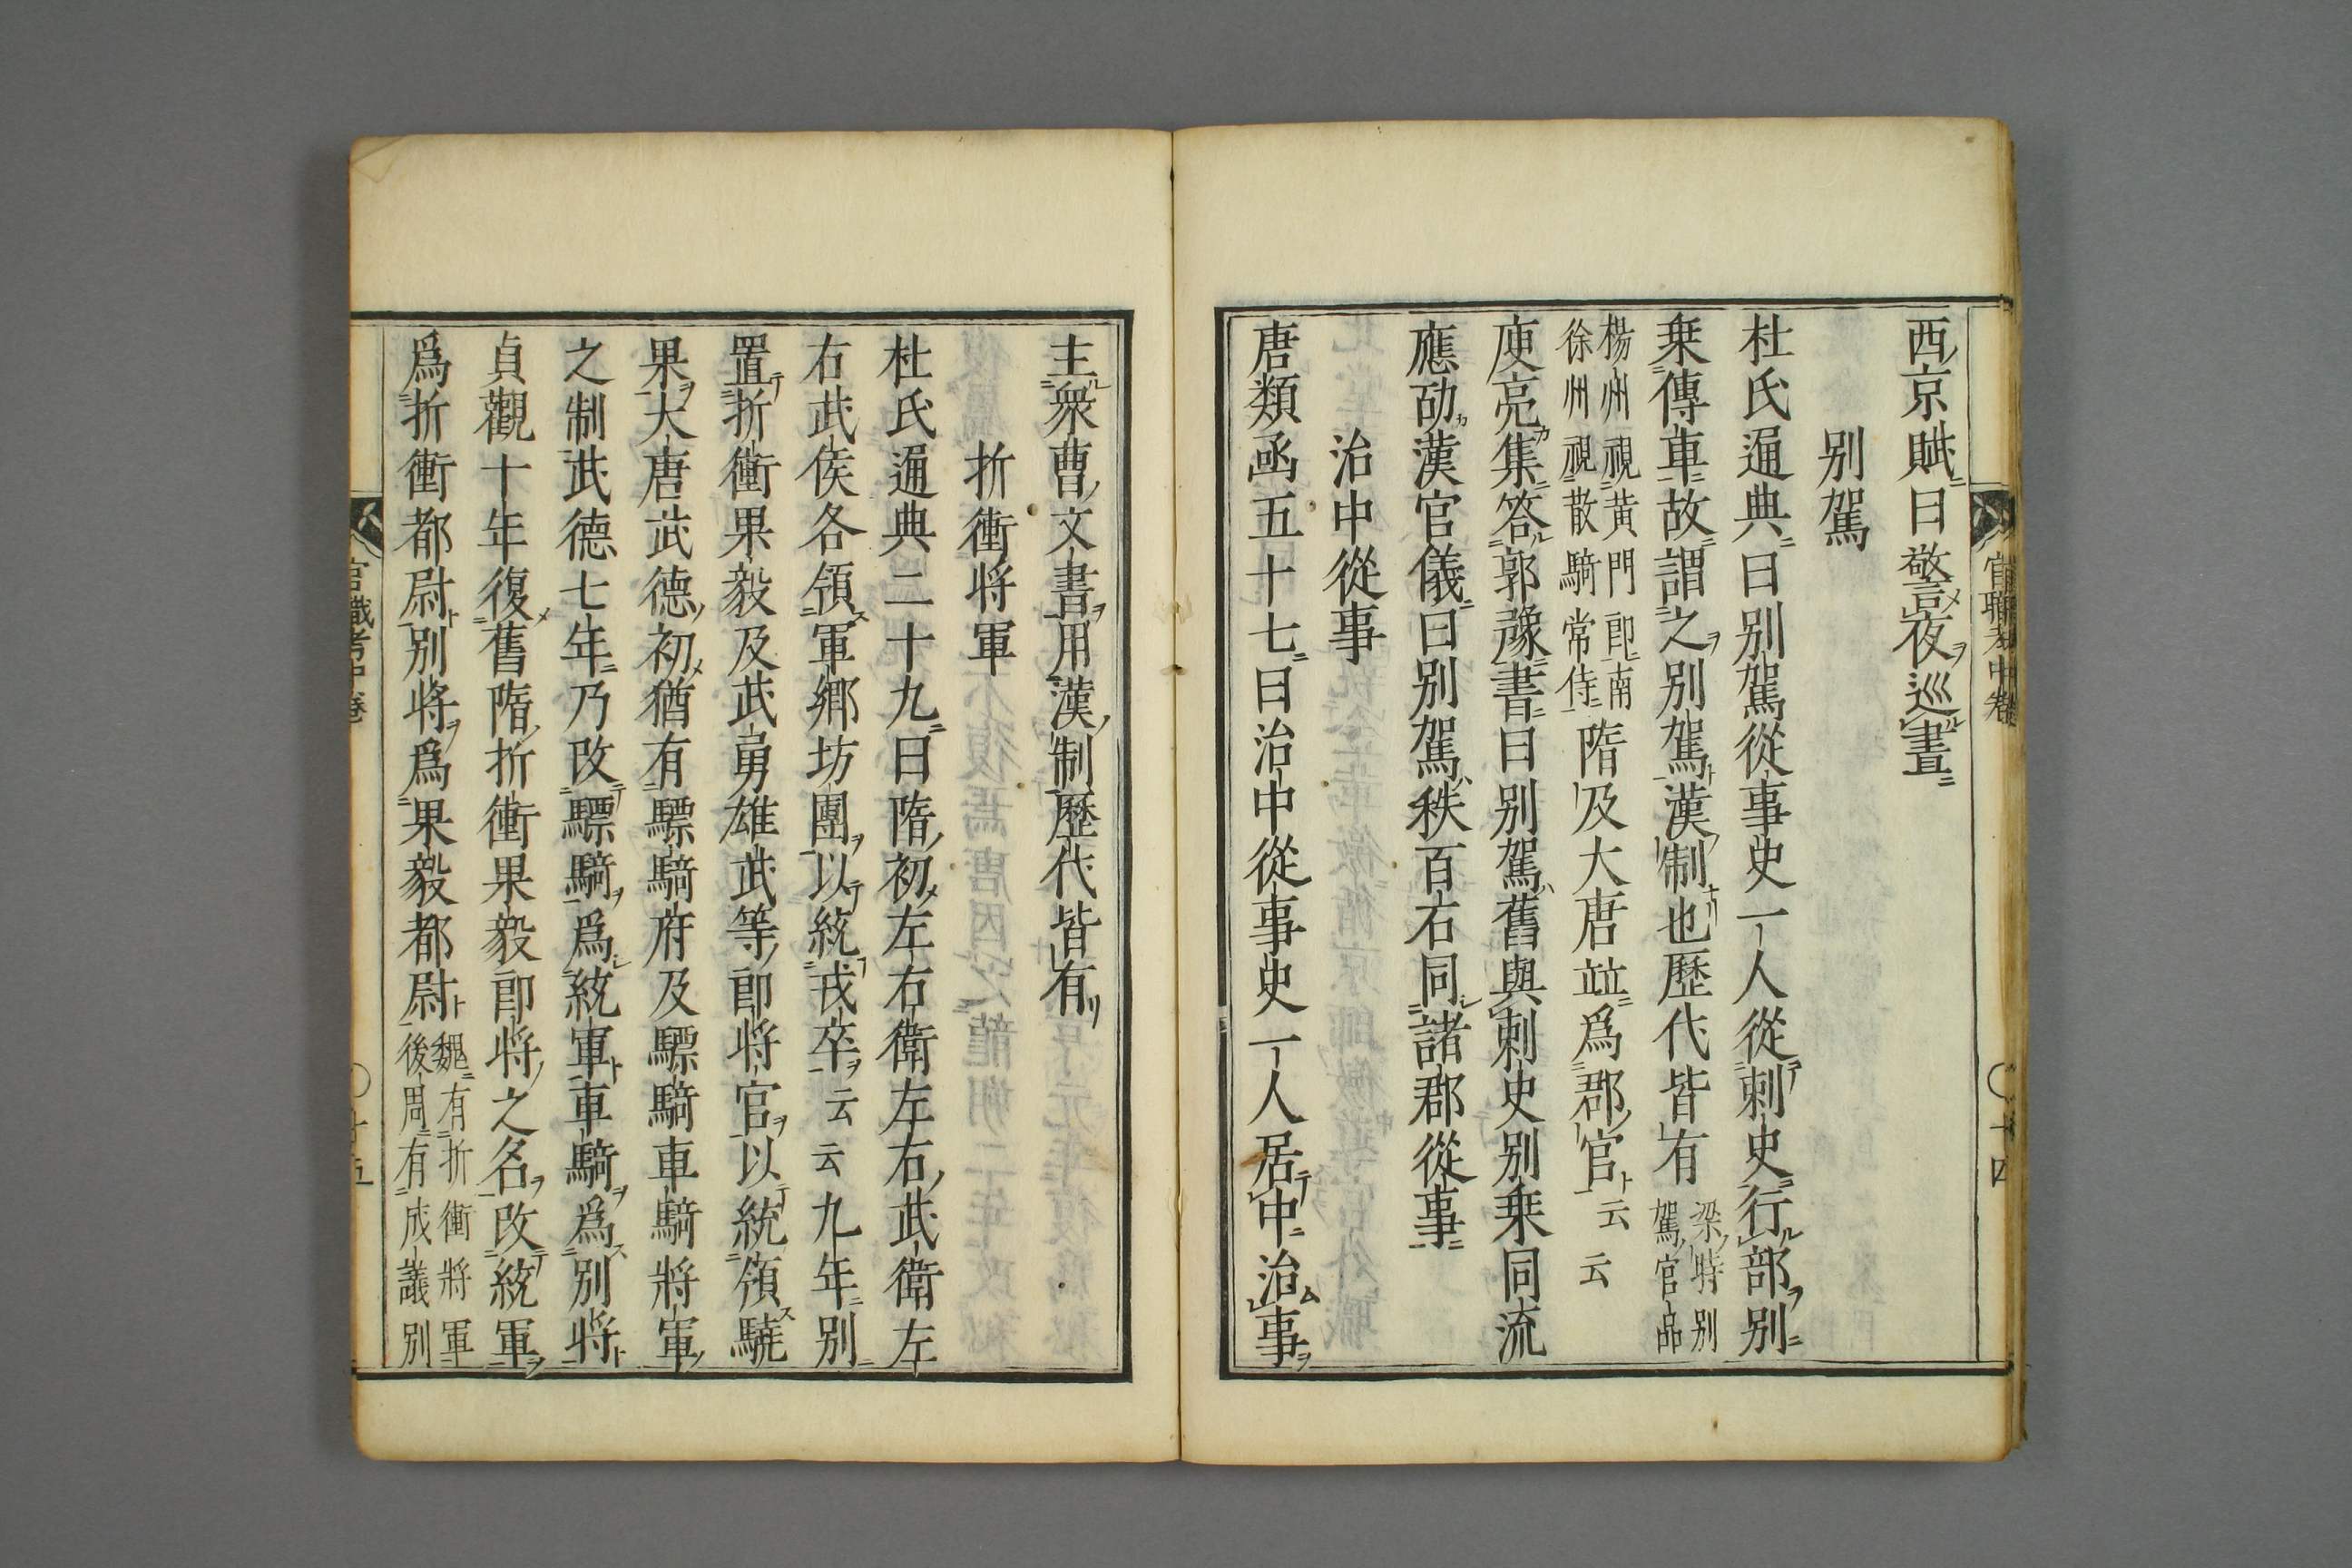 西京賦曰警夜巡晝
別駕
杜氏通典曰別駕從事史一人從刺史行部別
乗傳車故謂之別駕漢制也歷代皆有梁時別駕官品
楊州視黃門郎南徐州視散騎常侍隋及大唐並爲郡官云云
庾亮集答郭豫書曰別駕舊與刺史別乗同流
應劭漢官儀曰別駕秩百石同諸郡從事
治中從事
唐類函五十七曰治中從事史一人居中治事
主衆曹文書用漢制歷代皆有
折衝將軍
杜氏通典二十九曰隋初左右衛左右武衛左
右武侯各領軍鄉坊團以統戎卒云云九年別
置折衝果毅及武勇雄武等郎將官以統領驍
果大唐武德初猶有驃騎府及驃騎車騎將軍
之制武德七年乃改驃騎爲統軍車騎爲別將
貞觀十年復舊隋折衝果毅郎將之名改統軍
爲折衝都尉別將爲果毅都尉魏有折衝將軍後周有成議別
官職考中卷
〇十四
官職考中卷
〇十五